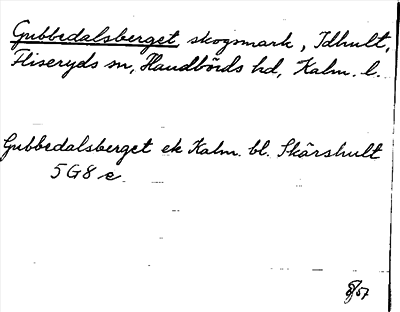 Gubbedalsberget, skogsmark, Idhult,
Fliseryds sn, Handbörds hd, Kalm. l.
Gubbedalsberget ek Kalm. bl. Skärshult
5G8e.